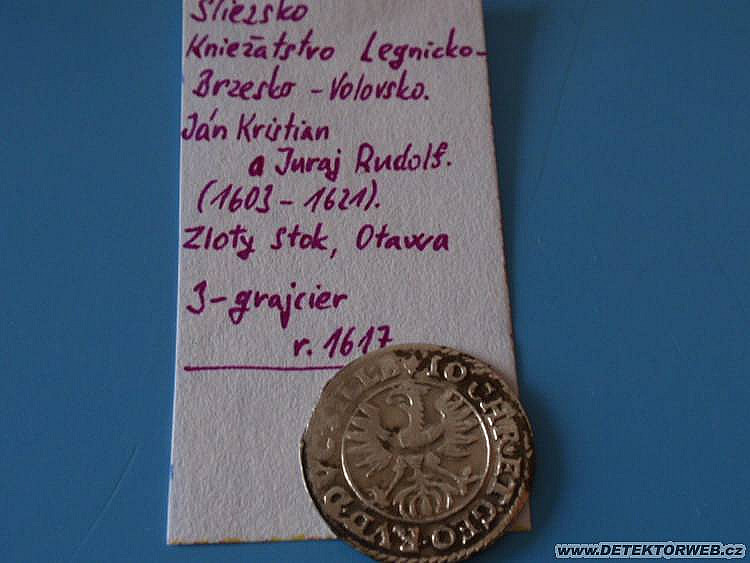 Sliezsko
Kniežatstvo Legnicko-
Brzesko - Volovsko.
Ján Kristian
a Juraj Rudolf.
(1603 - 1621).
Zloty Stok, Otawa
3-grajcier
r. 1617
IO CHR ET GEO RVD D
www.DETEKTORWEB.cz